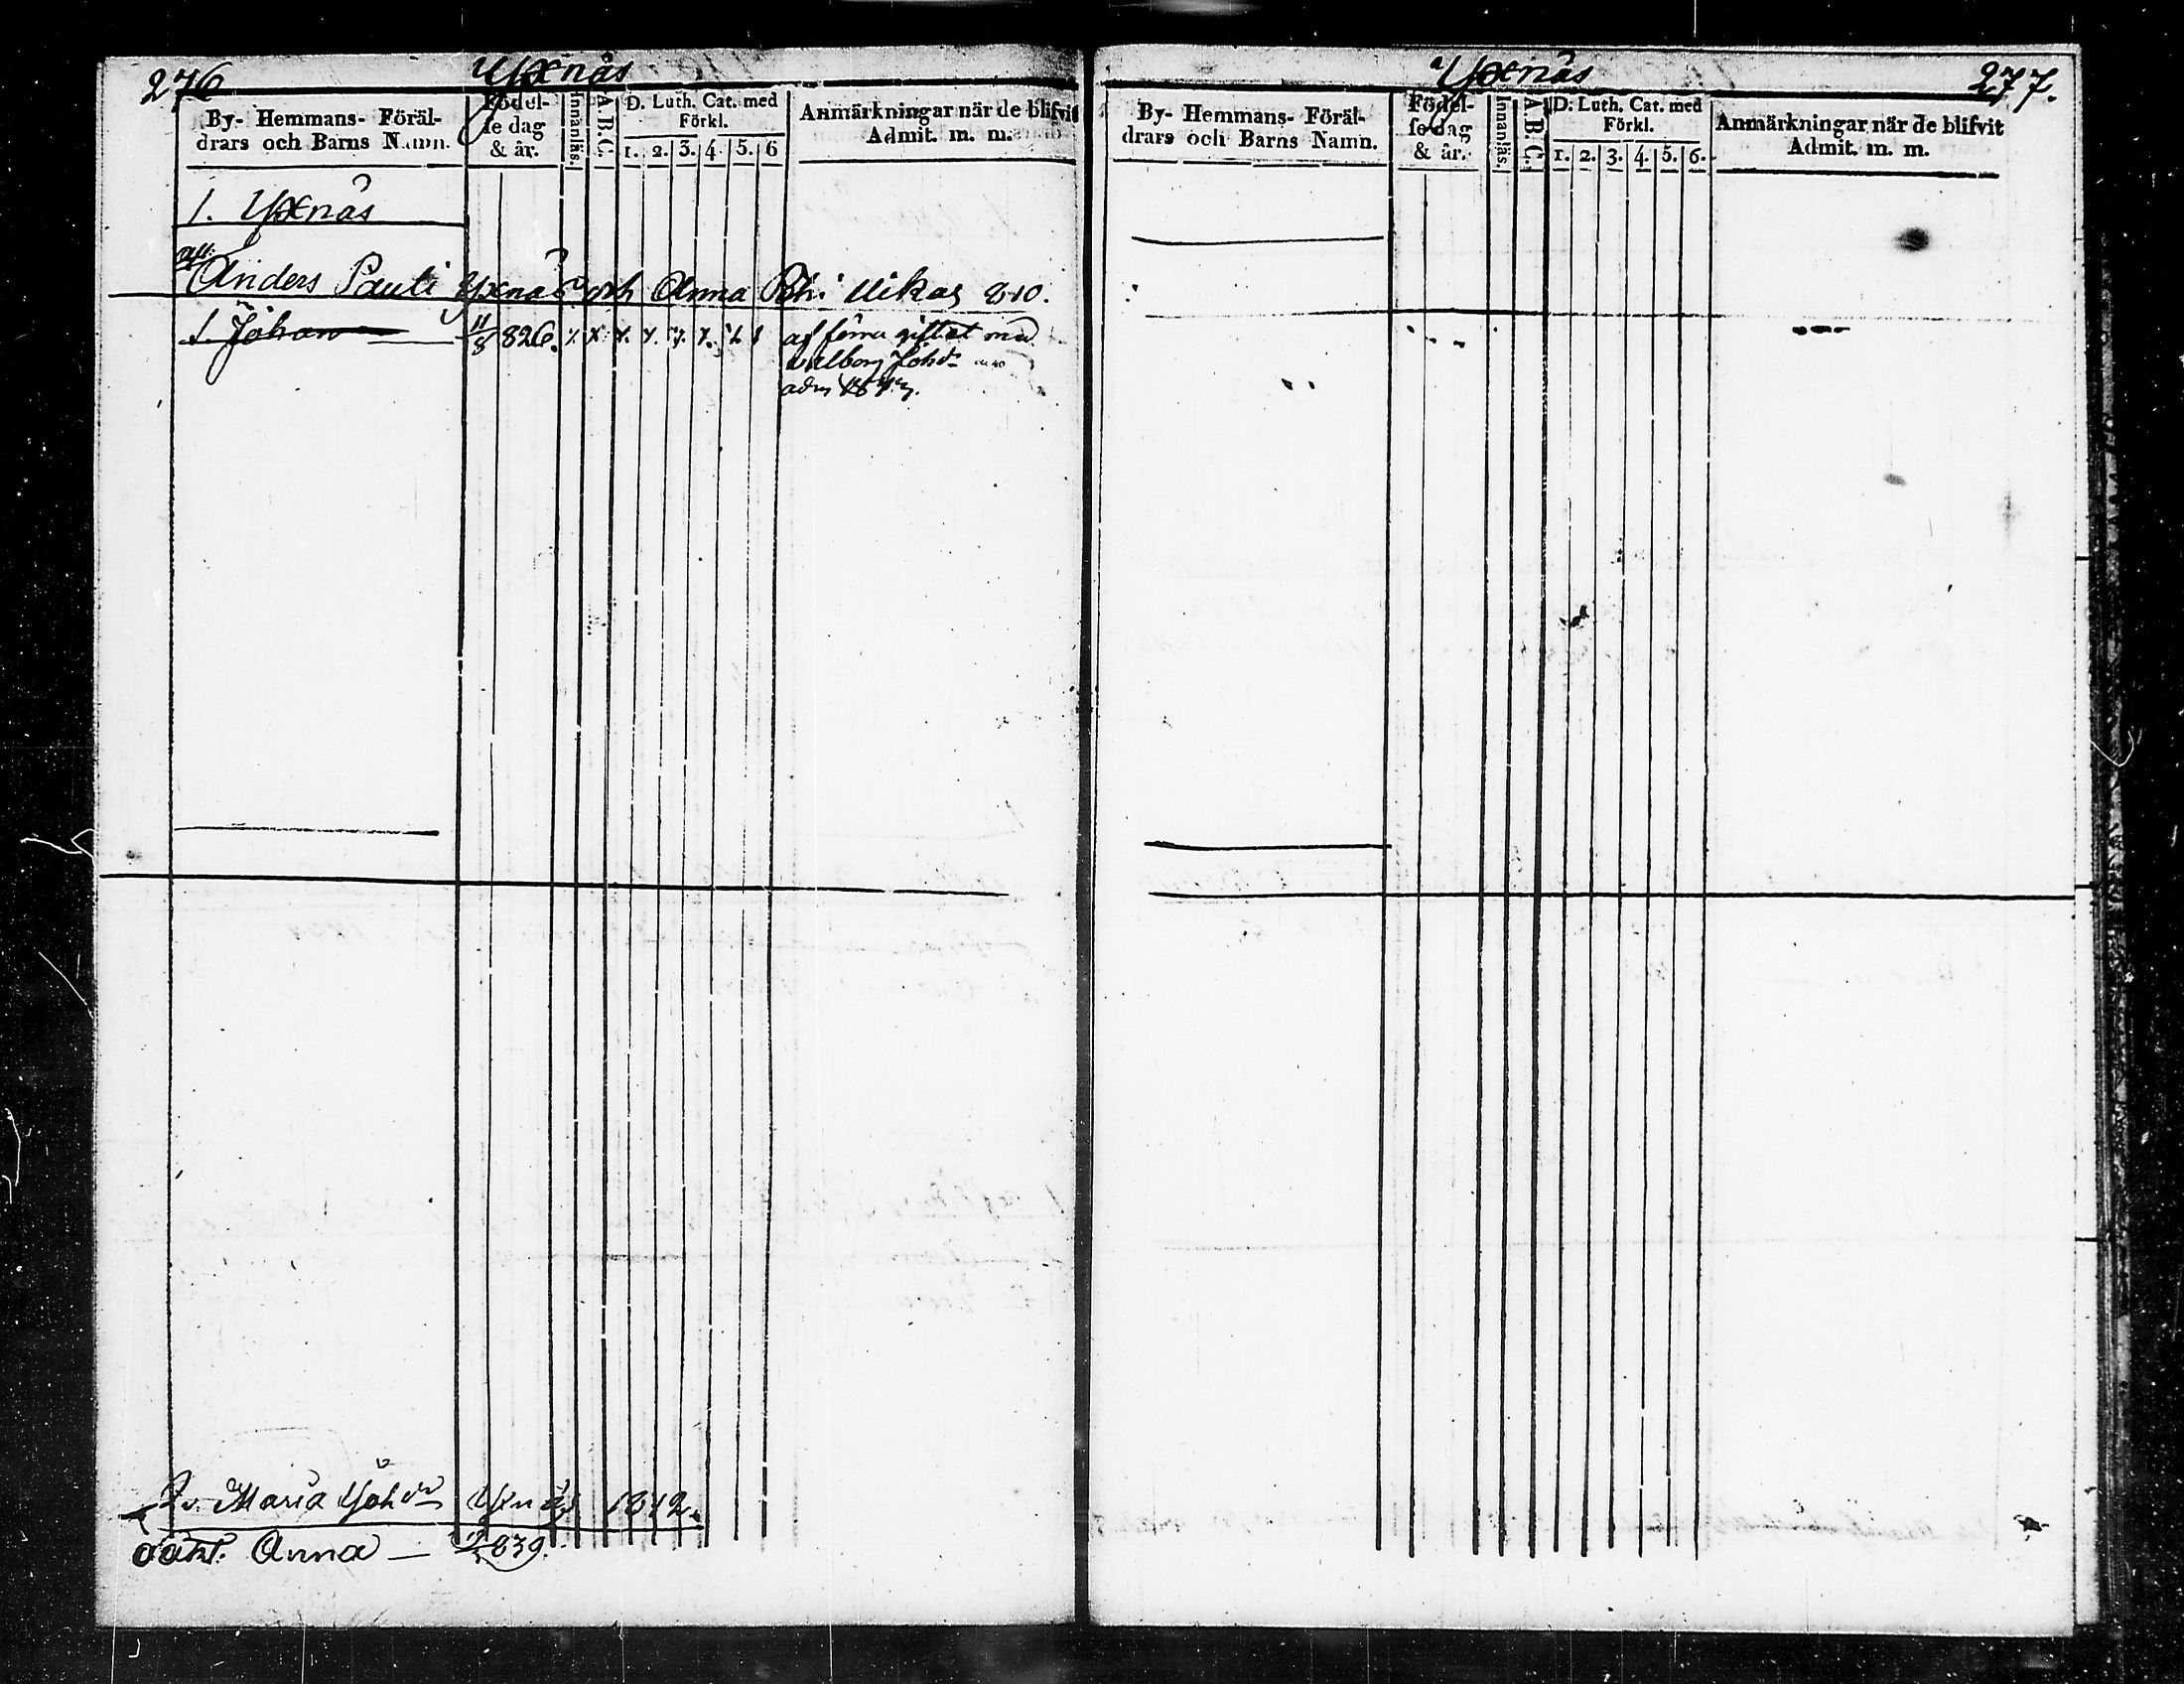 276
Yxnäs
By- Hemmans- Föräl-
drars och Barns Namn.
Födel-
se dag
& år.
Innanläs.
A.B.C.
D. Luth. Cat. med
Förkl.
1. 2. 3. 4. 5. 6
Anmärkningar när de blifvit
Admit. m. m.
1. Yxnäs
Anders Pauli Yxnäs och Anna 810.
S. Johan 11/8 826.
af förra giftet med
Valborg Joh:dr
adm
Maria Joh:dr Yxnäs 1812.
Anna — 839.
Yxnäs
277.
By- Hemmans- Föräl-
drars och Barns Namn.
Födel-
se dag
& år.
Innanläs.
A.B.C.
D. Luth. Cat. med
Förkl.
1. 2. 3. 4. 5. 6.
Anmärkningar när de blifvit
Admit. m. m.